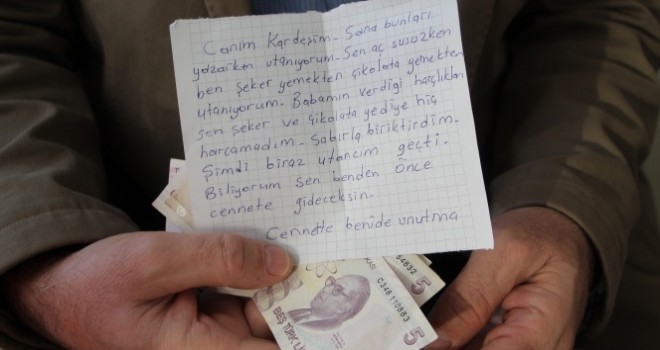 Canım Kardeşim. Sana bunları
yazarken utanıyorum. Sen aç susuzken
ben şeker yemekten çikolata yemekten
utanıyorum. Babamın verdiği harçlıkları
sen şeker ve çikolata yediye hiç
harcamadım. Sabırla biriktirdim.
Şimdi biraz utancım geçti.
Biliyorum sen benden Önce
cennete gideceksin.
Cennette benide unutma
C348110983
5
BEŞ TÜRK Lİ